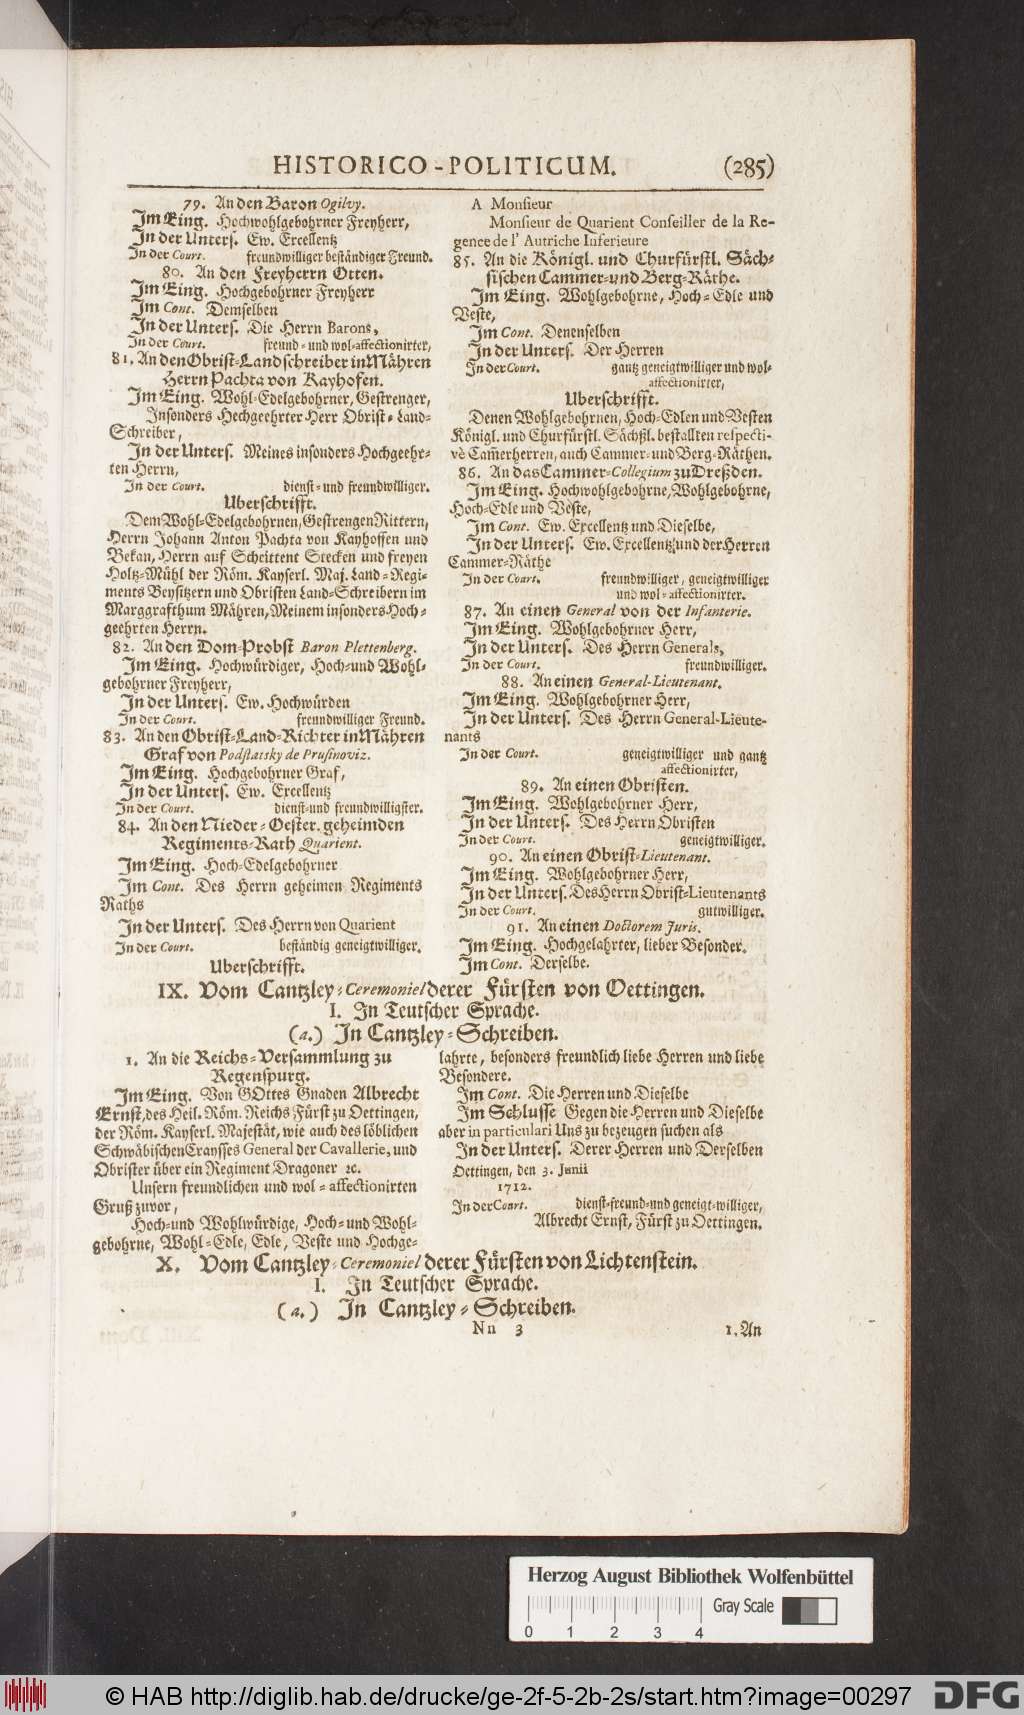 HISTORICO-POLITICUM. (285)
79. An den Baron Ogilvy.
Im Eing. Hochwohlgebohrner Freyherr,
In der Unters. Ew. Excellentz
In der Court. freundwilliger beständiger Freund.
80. An den Freyherrn Otten.
Im Eing. Hochgebohrner Freyherr
Im Cont. Demselben
In der Unters. Die Herrn Barons,
In der Court. freund- und wol-affectionirter,
81. An den Obrist-Landschreiber in Mähren
Herrn Pachta von Rayhofen.
Im Eing. Wohl-Edelgebohrner, Gestrenger,
Insonders Hochgeehrter Herr Obrist-Land-
Schreiber,
In der Unters. Meines insonders Hochgeehr-
ten Herrn,
In der Court. dienst- und freundwilliger.
Uberschrifft.
Dem Wohl-Edelgebohrnen, Gestrengen Rittern,
Herrn Johann Anton Pachta von Rayhoffen und
Bekan, Herrn auf Scheittent Stecken und freyen
Holtz-Mühl der Röm. Kayserl. Maj. Land-Regi-
ments Beysitzern und Obristen Land-Schreibern im
Marggrafthum Mähren, Meinem insonders Hoch-
geehrten Herrn.
82. An den Dom-Probst Baron Plettenberg.
Im Eing. Hochwürdiger, Hoch-und Wohl-
gebohrner Freyherr,
In der Unters. Ew. Hochwürden
In der Court. freundwilliger Freund.
83. An den Obrist-Land-Richter in Mähren
Graf von Podstatsky de Prusinoviz.
Im Eing. Hochgebohrner Graf,
In der Unters. Ew. Excellentz
In der Court. dienst-und freundwilligster.
84. An den Nieder-Oester. geheimden
Regiments-Rath Quarient.
Im Eing. Hoch-Edelgebohrner
Im Cont. Des Herrn geheimen Regiments
Raths
In der Unters. Des Herrn von Quarient
In der Court. beständig geneigtwilliger.
Uberschrifft.
A Monsieur
Monsieur de Quarient Conseiller de la Re-
gence de l' Autriche Inferieure
85. An die Königl. und Churfürstl. Säch-
sischen Cammer-und Berg-Räthe.
Im Eing. Wohlgebohrne, Hoch-Edle und
Veste,
Im Cont. Denenselben
In der Unters. Der Herren
In der Court. gantz geneigtwilliger und wol-
affectionirter,
Uberschrifft.
Denen Wohlgebohrnen, Hoch-Edlen und Vesten
Königl. und Churfürstl. Sächßl. bestallten respecti-
vè Cam̃erherren, auch Cammer-und Berg-Räthen.
86. An das Cammer-Collegium zu Dreßden.
Im Eing. Hochwohlgebohrne, Wohlgebohrne,
Hoch-Edle und Veste,
Im Cont. Ew. Excellentz und Dieselbe,
In der Unters. Ew. Excellentz und der Herren
Cammer-Räthe
In der Court. freundwilliger, geneigtwilliger
und wol-affectionirter.
87. An einen General von der Infanterie.
Im Eing. Wohlgebohrner Herr,
In der Unters. Des Herrn Generals,
In der Court. freundwilliger.
88. An einen General-Lieutenant.
Im Eing. Wohlgebohrner Herr,
In der Unters. Des Herrn General-Lieute-
nants
In der Court. geneigtwilliger und gantz
affectionirter,
89. An einen Obristen.
Im Eing. Wohlgebohrner Herr,
In der Unters. Des Herrn Obristen
In der Court. geneigtwilliger.
90. An einen Obrist-Lieutenant.
Im Eing. Wohlgebohrner Herr,
In der Unters. Des Herrn Obrist-Lieutenants
In der Court. gutwilliger.
91. An einen Doctorem Juris.
Im Eing. Hochgelahrter, lieber Besonder.
Im Cont. Derselbe.
IX. Vom Cantzley-Ceremoniel derer Fürsten von Oettingen.
I. In Teutscher Sprache.
(a.) In Cantzley-Schreiben.
1. An die Reichs-Versammlung zu
Regenspurg.
Im Eing. Von GOttes Gnaden Albrecht
Ernst, des Heil. Röm. Reichs Fürst zu Oettingen,
der Röm. Kayserl. Majestät, wie auch des löblichen
Schwäbischen Craysses General der Cavallerie, und
Obrister über ein Regiment Dragoner ꝛc.
Unsern freundlichen und wol-affectionirten
Gruß zuvor,
Hoch-und Wohlwürdige, Hoch-und Wohl-
gebohrne, Wohl-Edle, Edle, Veste und Hochge-
lahrte, besonders freundlich liebe Herren und liebe
Besondere.
Im Cont. Die Herren und Dieselbe
Im Schlusse Gegen die Herren und Dieselbe
aber in particulari Uns zu bezeugen suchen als
In der Unters. Derer Herren und Derselben
Oettingen, den 3. Junii
1712.
In der Court. dienst-freund-und geneigt-williger,
Albrecht Ernst, Fürst zu Oettingen.
X. Vom Cantzley-Ceremoniel derer Fürsten von Lichtenstein.
I. In Teutscher Sprache.
(a.) In Cantzley-Schreiben.
Nn 3 1. An
Herzog August Bibliothek Wolfenbüttel
Gray Scale
0 1 2 3 4
© HAB http://diglib.hab.de/drucke/ge-2f-5-2b-2s/start.htm?image=00297 DFG